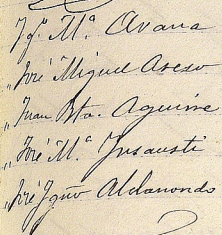 Jꝭ. Mª Arana
„ José Miguel Aseso
„ Juan Bta. Aguirre
„ José Mª Insausti
„ José Ygnº Aldanondo